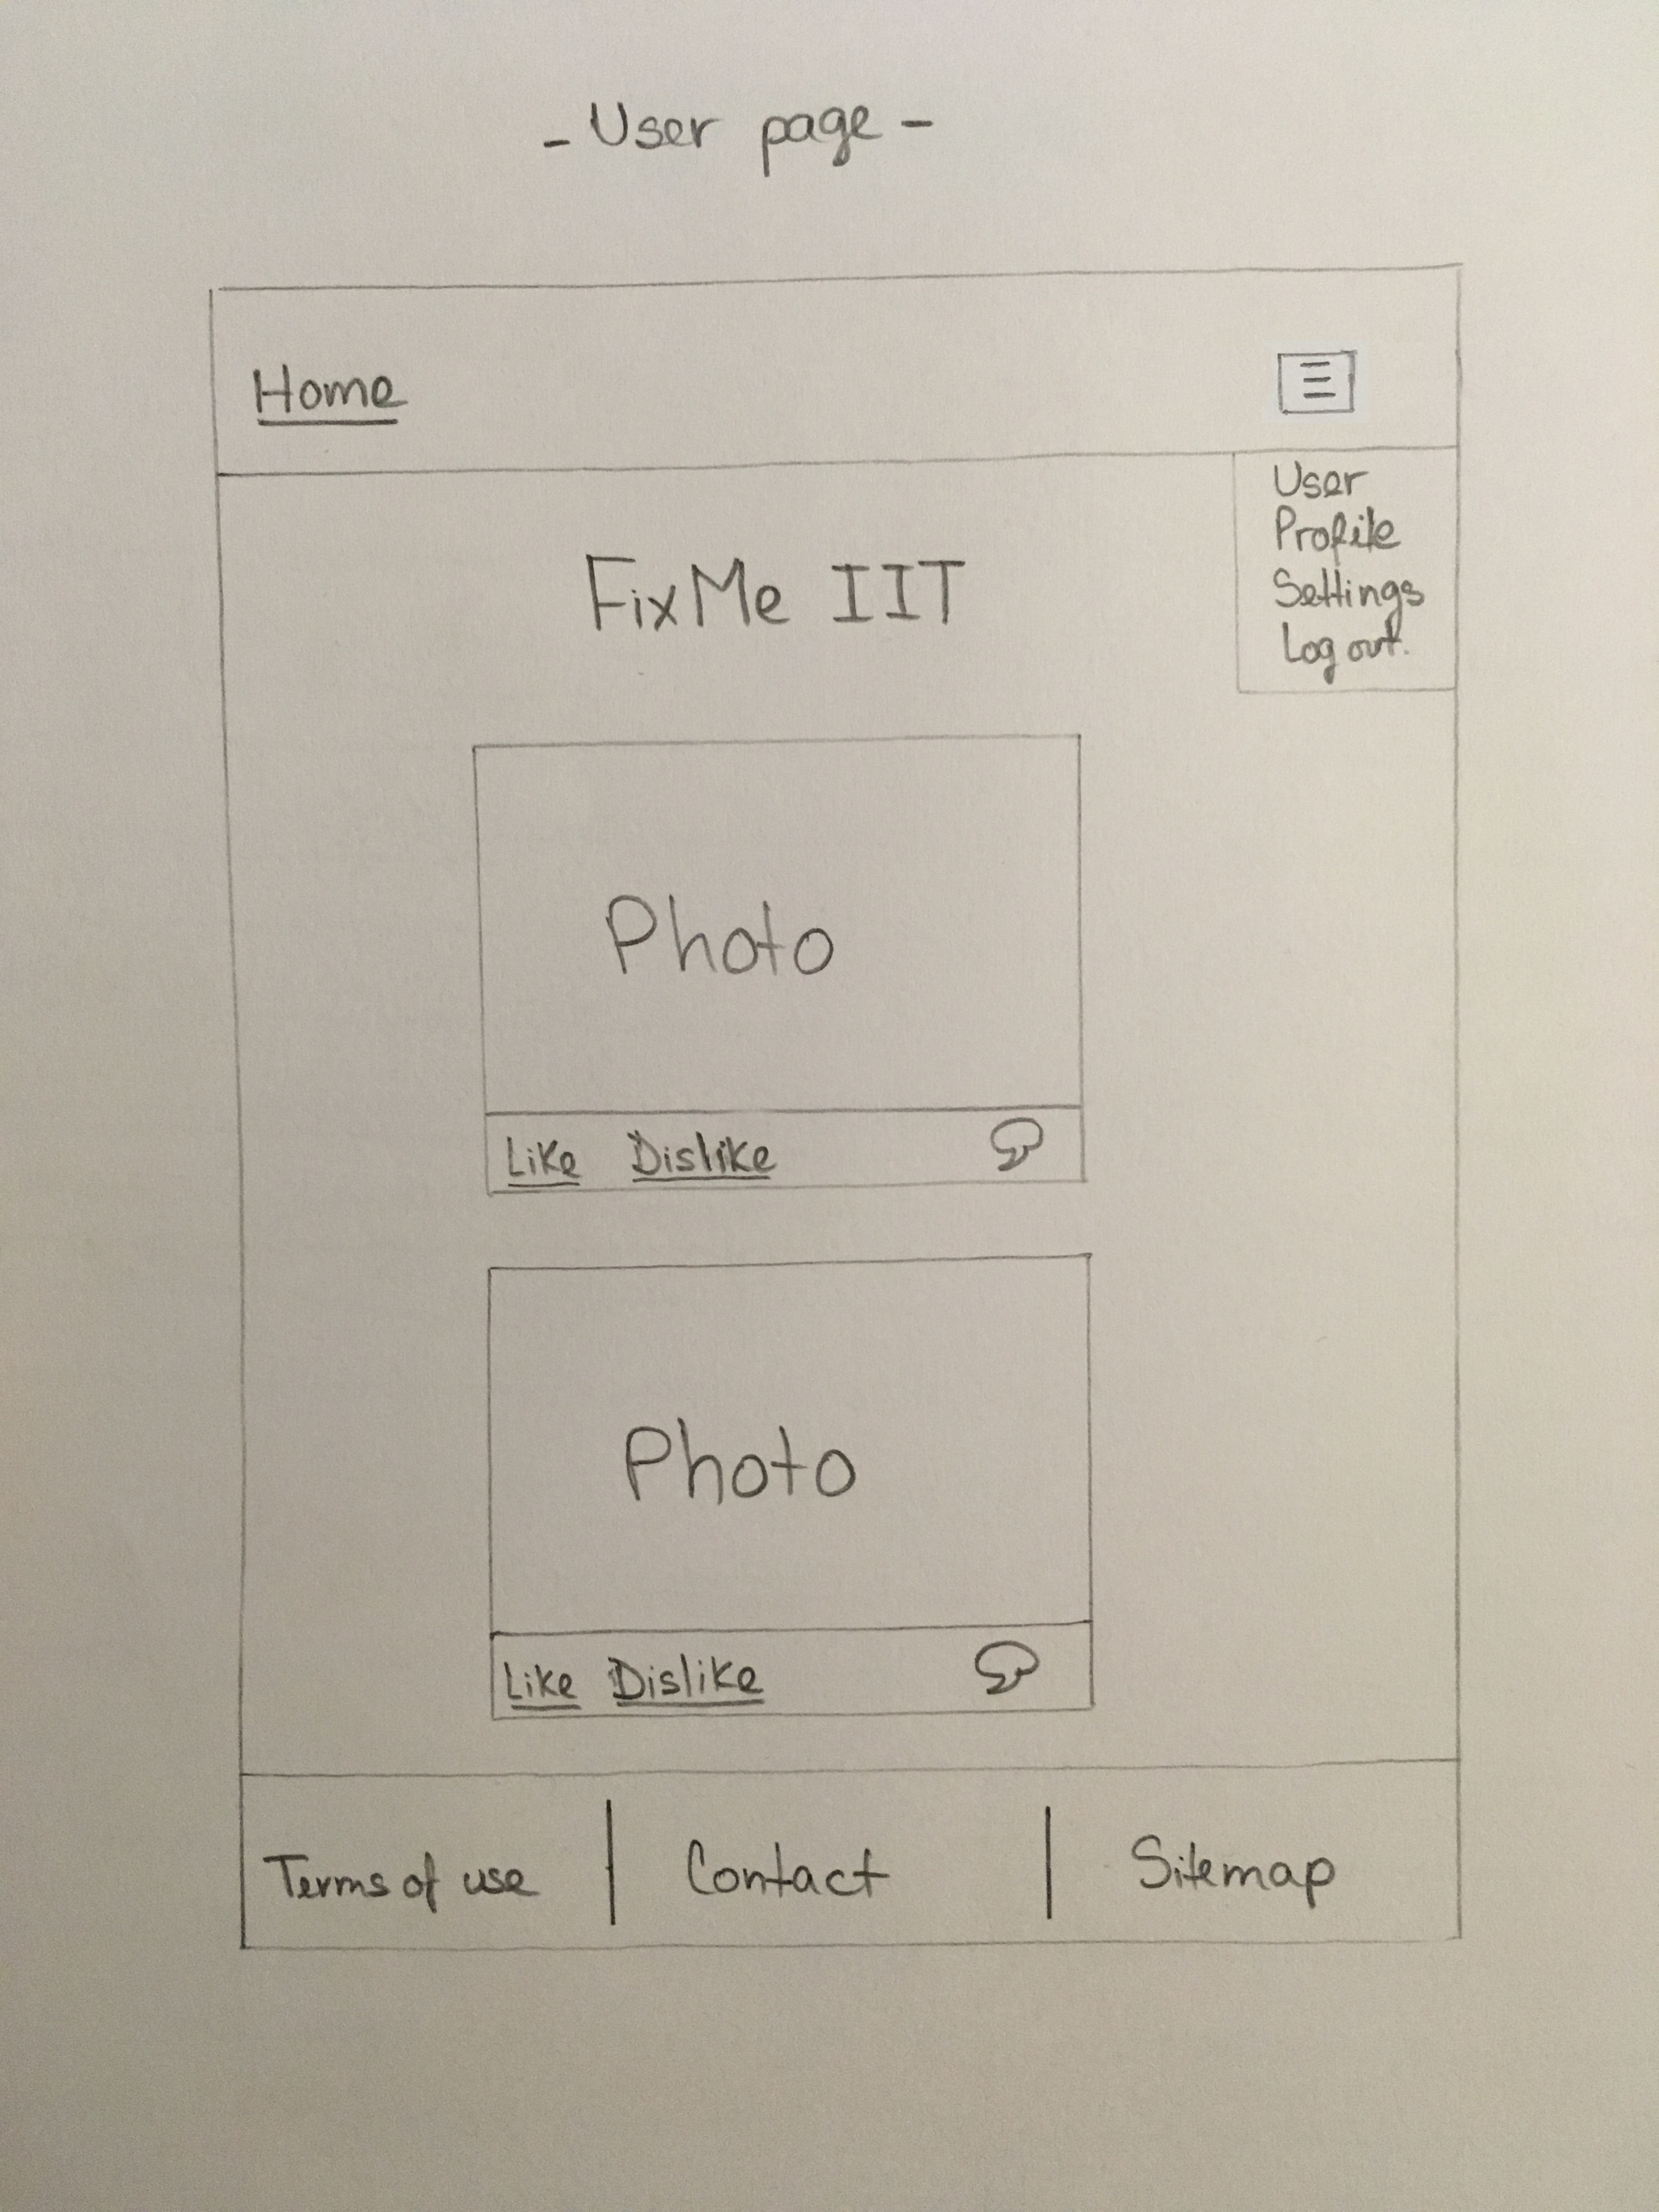 - User page -
Home
User
Profile
Settings
Log out.
FixMe IIT
Photo
Like Dislike
Photo
Like Dislike
Terms of use | Contact | Sitemap